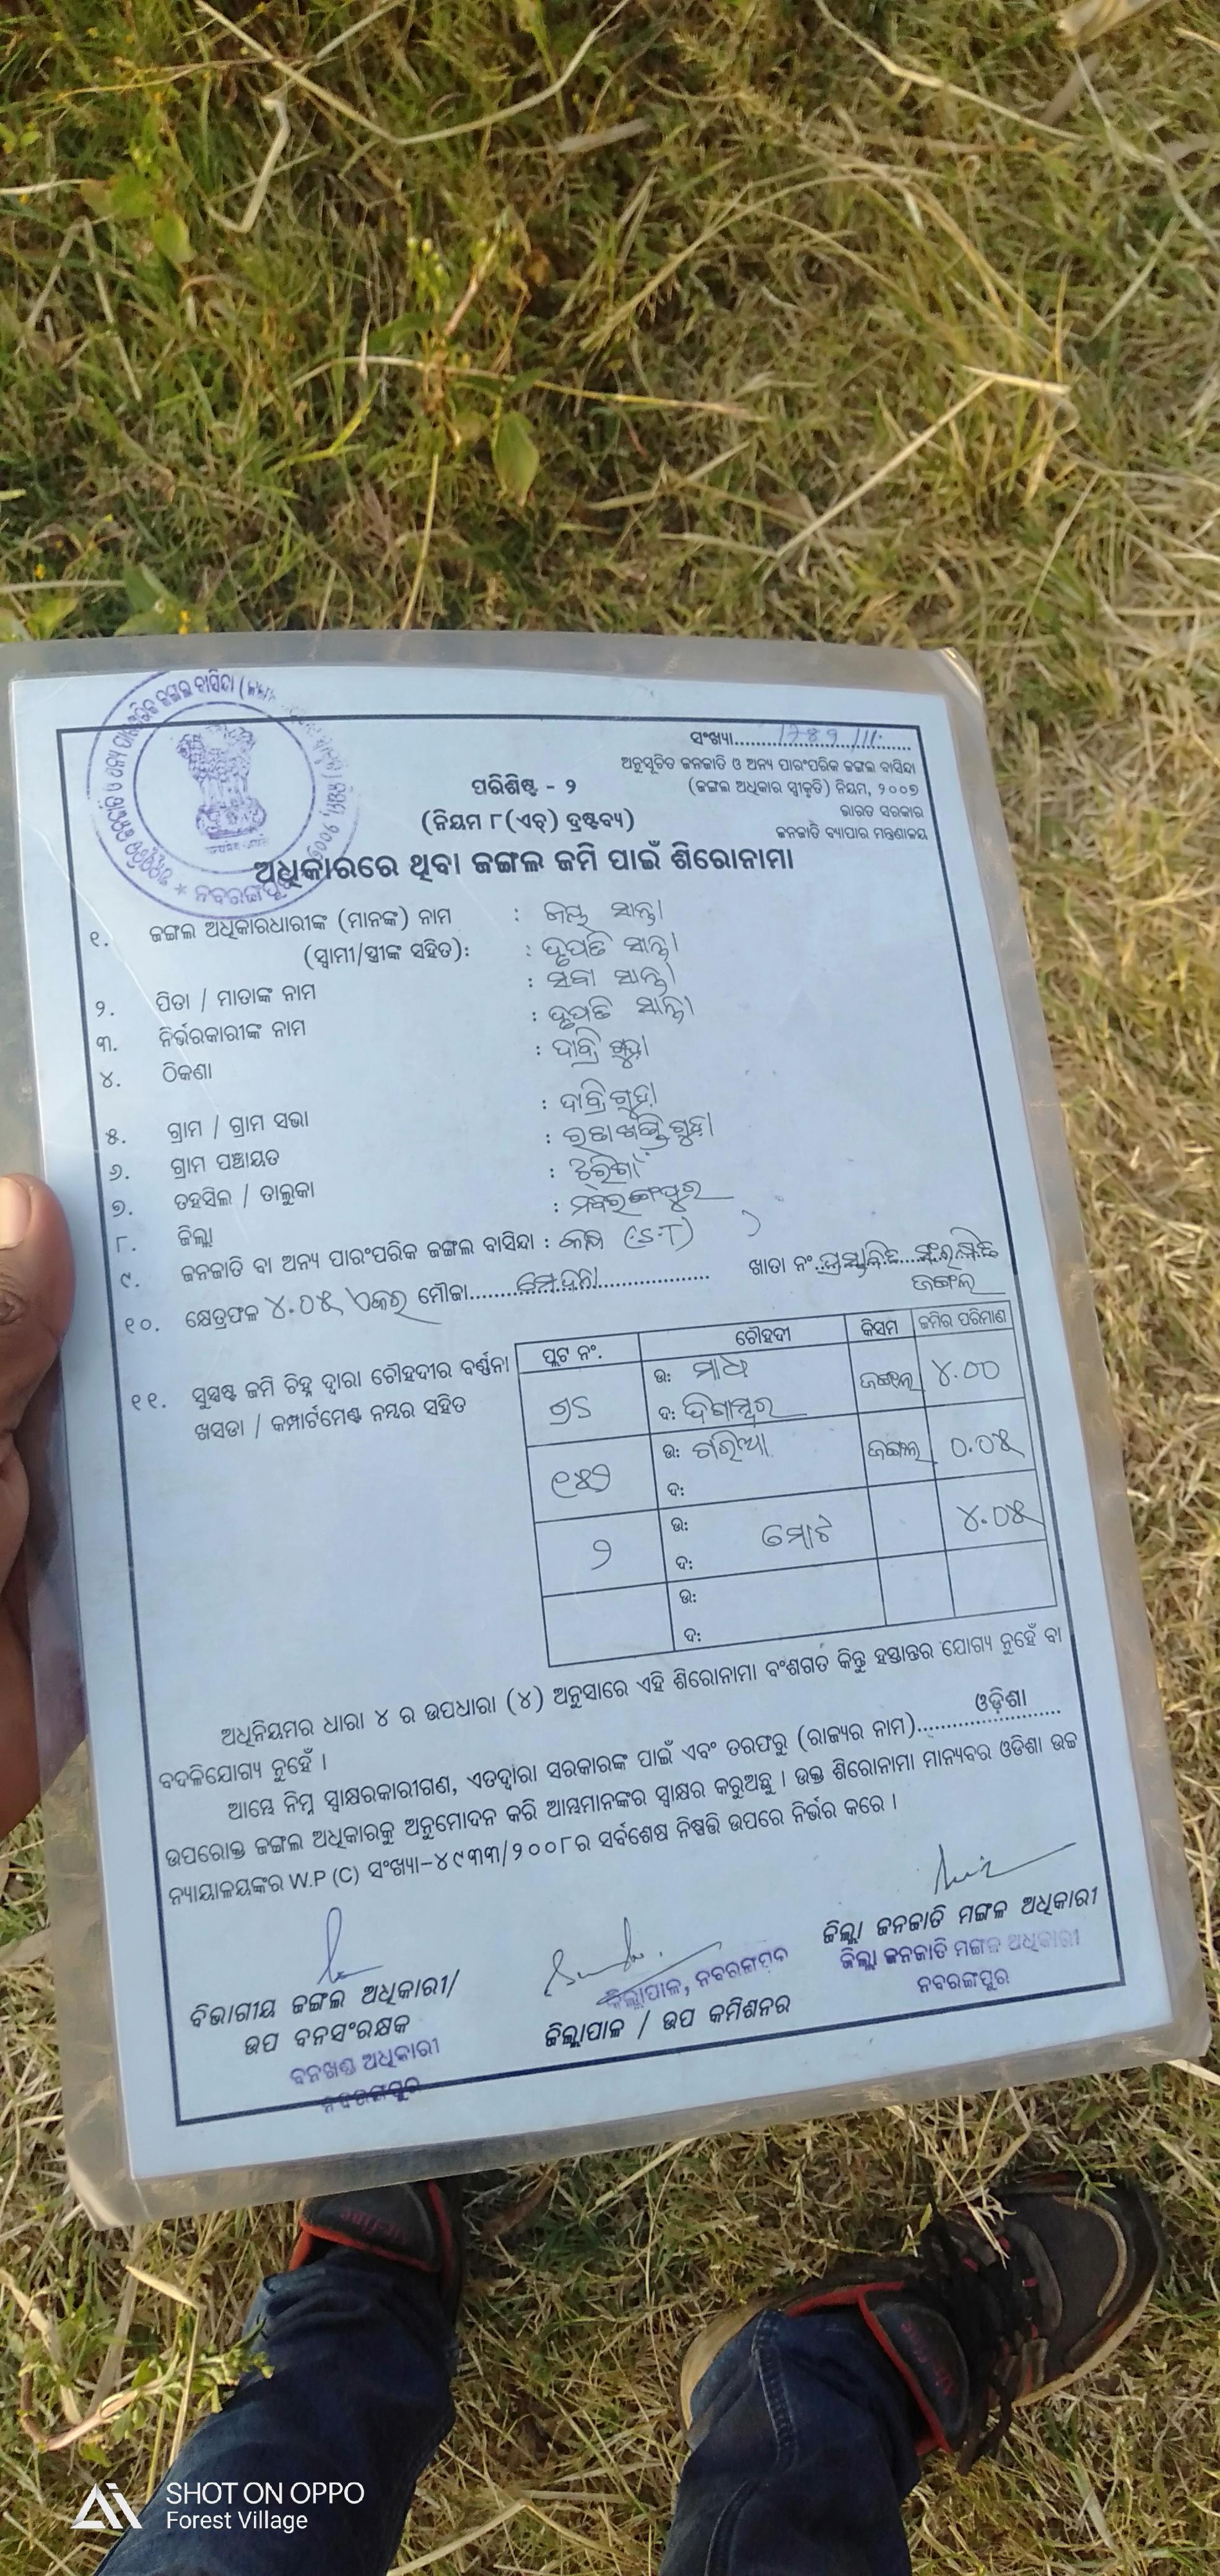 ସଂଖ୍ୟା
ଅନୁସୂଚିତ ଜନଜାତି ଓ ଅନ୍ୟ ପାରଂପରିକ ଜଙ୍ଗଲ ବାସିନ୍ଦା
(ଜଙ୍ଗଲ ଅଧିକାର ସ୍ୱୀକୃତି) ନିୟମ, ୨୦୦୭
ଭାରତ ସରକାର
ଜନଜାତି ବ୍ୟାପାର ମନ୍ତ୍ରଣାଳୟ
ପରିଶିଷ୍ଟ - ୨
(ନିୟମ ୮(ଏଚ୍) ଦ୍ରଷ୍ଟବ୍ୟ)
ଅଧିକାରରେ ଥିବା ଜଙ୍ଗଲ ଜମି ପାଇଁ ଶିରୋନାମା
ନବରଙ୍ଗପୁର
୧. ଜଙ୍ଗଲ ଅଧିକାରଧାରୀଙ୍କ (ମାନଙ୍କ) ନାମ :
(ସ୍ୱାମୀ/ସ୍ତ୍ରୀଙ୍କ ସହିତ): :
୨. ପିତା / ମାତାଙ୍କ ନାମ :
୩. ନିର୍ଭରକାରୀଙ୍କ ନାମ :
୪. ଠିକଣା :
୫. ଗ୍ରାମ / ଗ୍ରାମ ସଭା : ଦାବ୍ରିଗୁଡ଼ା
୬. ଗ୍ରାମ ପଞ୍ଚାୟତ :
୭. ତହସିଲ / ତାଲୁକା :
୮. ଜିଲ୍ଲା : ନବରଙ୍ଗପୁର
୯. ଜନଜାତି ବା ଅନ୍ୟ ପାରଂପରିକ ଜଙ୍ଗଲ ବାସିନ୍ଦା : (S.T)
୧୦. କ୍ଷେତ୍ରଫଳ ୪.୦୫ ଏକର ମୌଜା ଖାତା ନଂ. ପ୍ରସ୍ତାବିତ ସଂରକ୍ଷିତ
ଜଙ୍ଗଲ
୧୧. ସୁସ୍ପଷ୍ଟ ଜମି ଚିହ୍ନ ଦ୍ୱାରା ଚୌହଦୀର ବର୍ଣ୍ଣନା
ଖସଡା / କମ୍ପାର୍ଟମେଣ୍ଟ ନମ୍ବର ସହିତ
ପ୍ଲଟ ନଂ. ଚୌହଦୀ କିସମ ଜମିର ପରିମାଣ
ଉ: ଜଙ୍ଗଲ ୪.୦୦
ଦ: ଦିଗାମ୍ବର
ଉ: ଜଙ୍ଗଲ ୦.୦୫
ଦ:
୨ ଉ: ମୋଟ ୪.୦୫
ଦ:
ଉ:
ଦ:
ଅଧିନିୟମର ଧାରା ୪ ର ଉପଧାରା (୪) ଅନୁସାରେ ଏହି ଶିରୋନାମା ବଂଶଗତ କିନ୍ତୁ ହସ୍ତାନ୍ତର ଯୋଗ୍ୟ ନୁହେଁ ବା
ବଦଳିଯୋଗ୍ୟ ନୁହେଁ ।
ଆମ୍ଭେ ନିମ୍ନ ସ୍ୱାକ୍ଷରକାରୀଗଣ, ଏତଦ୍ୱାରା ସରକାରଙ୍କ ପାଇଁ ଏବଂ ତରଫରୁ (ରାଜ୍ୟର ନାମ) ଓଡ଼ିଶା
ଉପରୋକ୍ତ ଜଙ୍ଗଲ ଅଧିକାରକୁ ଅନୁମୋଦନ କରି ଆମ୍ଭମାନଙ୍କର ସ୍ୱାକ୍ଷର କରୁଅଛୁ । ଉକ୍ତ ଶିରୋନାମା ମାନ୍ୟବର ଓଡିଶା ଉଚ୍ଚ
ନ୍ୟାୟାଳୟଙ୍କର W.P (C) ସଂଖ୍ୟା-୪୯୩୩/୨୦୦୮ର ସର୍ବଶେଷ ନିଷ୍ପତ୍ତି ଉପରେ ନିର୍ଭର କରେ ।
ବିଭାଗୀୟ ଜଙ୍ଗଲ ଅଧିକାରୀ/
ଉପ ବନସଂରକ୍ଷକ
ବନଖଣ୍ଡ ଅଧିକାରୀ
ନବରଙ୍ଗପୁର
ଜିଲ୍ଲାପାଳ, ନବରଙ୍ଗପୁର
ଜିଲ୍ଲାପାଳ / ଉପ କମିଶନର
ଜିଲ୍ଲା ଜନଜାତି ମଙ୍ଗଳ ଅଧିକାରୀ
ଜିଲ୍ଲା ଜନଜାତି ମଙ୍ଗଳ ଅଧିକାରୀ
ନବରଙ୍ଗପୁର
SHOT ON OPPO
Forest Village